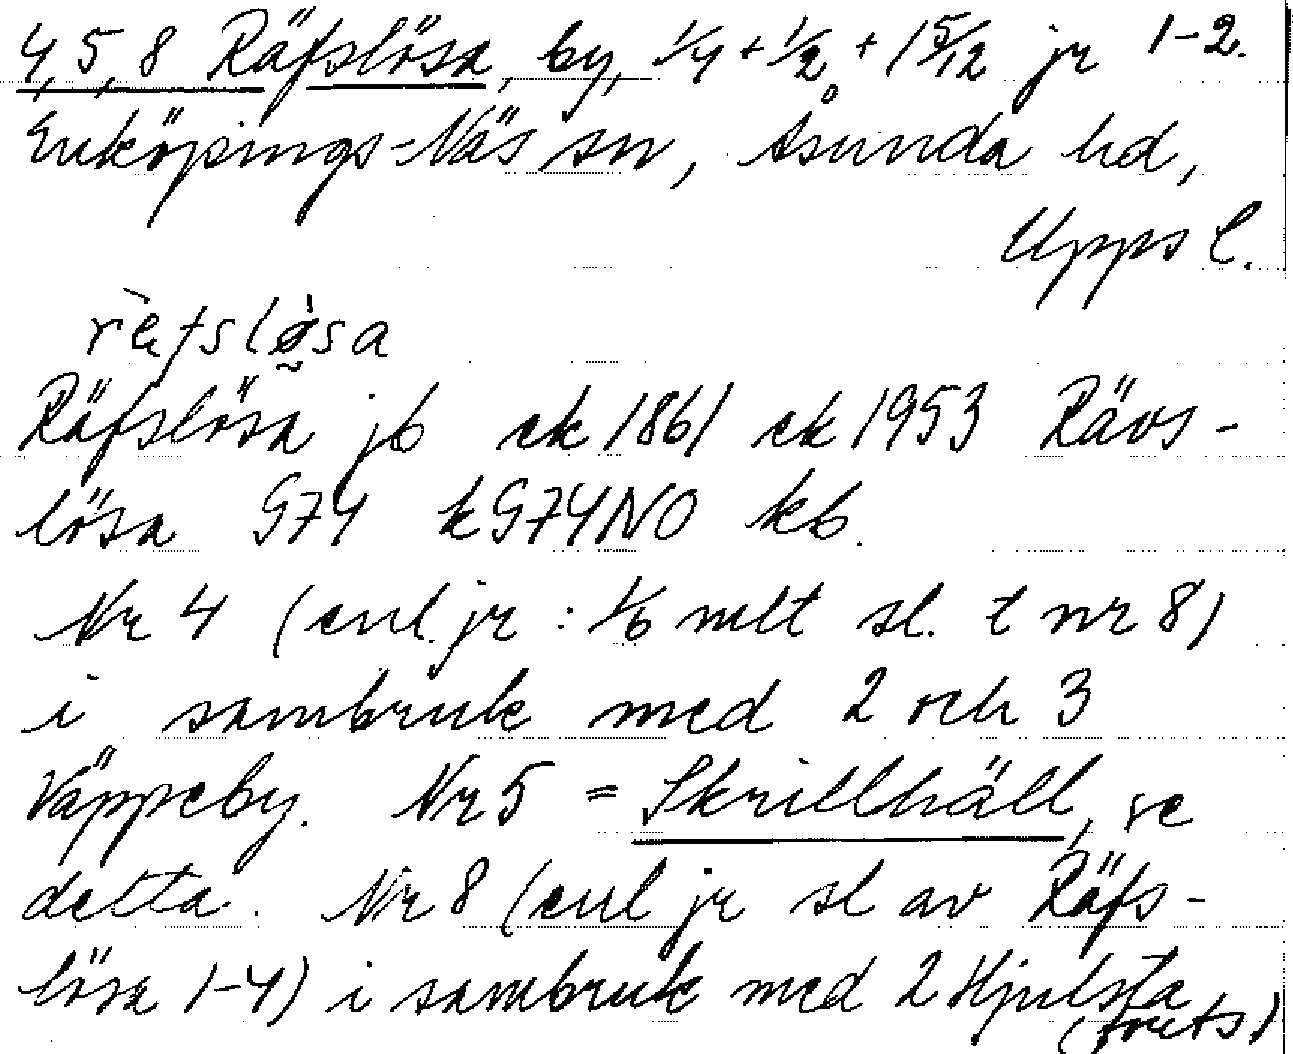 4, 5, 8 Räfslösa, by, 1/4 + 1/2 + 1 5/12 jr 1-2.
Enköpings-Näs sn, Åsunda hd,
Upps l.
Räfslösa jb ek 1861 ek 1953 Rävs-
lösa G74 kG74NO kb.
Nr 4 (enl. jr : 1/6 mlt sl. t nr 8)
i sambruk med 2 och 3
Väppeby. Nr 5 = Skrillhäll, se
detta. Nr 8 (enl jr sl av Räfs-
lösa 1-4) i sambruk med 2 Hjulsta
(forts)